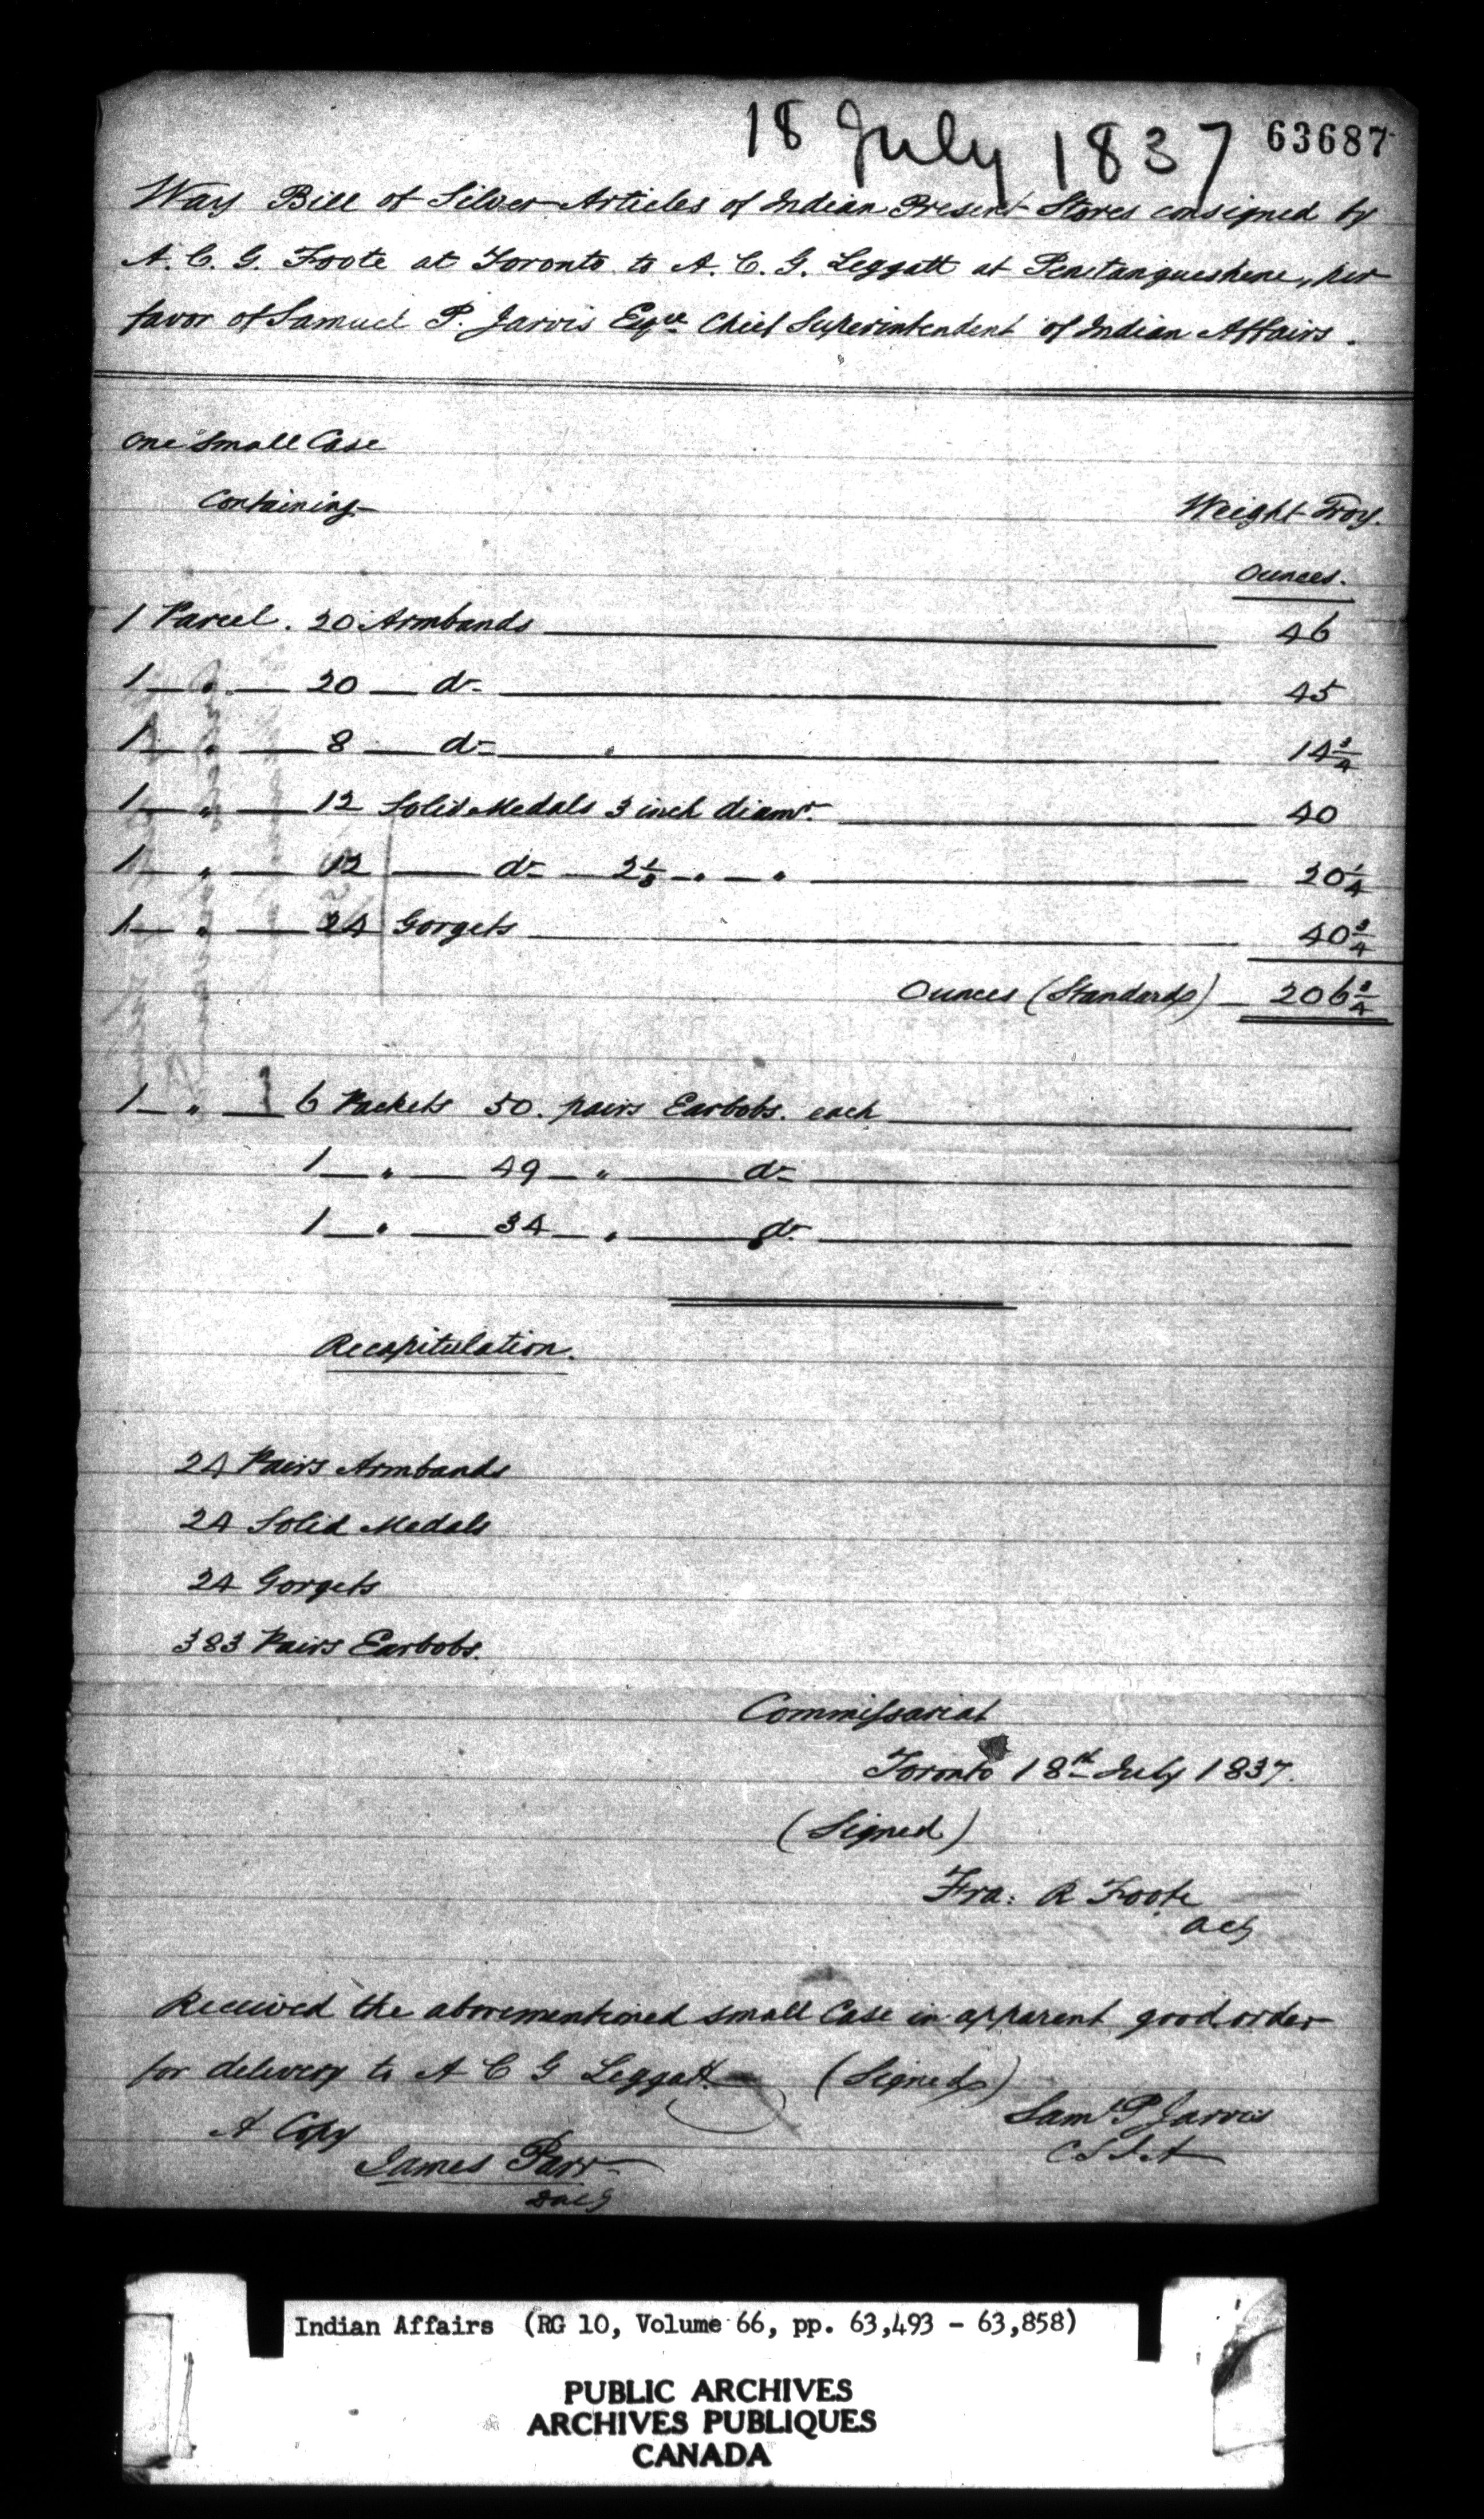 18 July 1837 63687
Way Bill of Silver Articles of Indian Present Stores consigned by
A. C. G. Foote at Toronto to A. C. G. Leggatt at Penetanguishene, per
favor of Samuel P. Jarvis Esqre Chief Superintendent of Indian Affairs.
One Small Case
Containing
Weight Troy.
Ounces.
1 Parcel. 20 Armbands 46
1 " 20 do 45
1 " 8 do 14 3/4
1 " 12 Solid Medals 3 inch diamr. 40
1 " 12 do 2 1/8 " " 20 1/4
1 " 24 Gorgets 40 3/4
Ounces (Standard) 206 3/4
1 " 6 Packets 50. pairs Earbobs. each
1 " 49 " do
1 " 34 " do
Recapitulation.
24 Pairs Armbands
24 Solid Medals
24 Gorgets
383 Pairs Earbobs.
Commissariat
Toronto 18th July 1837.
(Signed)
Fra: R Foote
ACG
Received the aforementioned small Case in apparent good order
for delivery to A C G Leggatt (Signed)
Saml P Jarvis
C S I A
A Copy
James Parr
DACG
Indian Affairs (RG 10, Volume 66, pp. 63,493 - 63,858)
PUBLIC ARCHIVES
ARCHIVES PUBLIQUES
CANADA